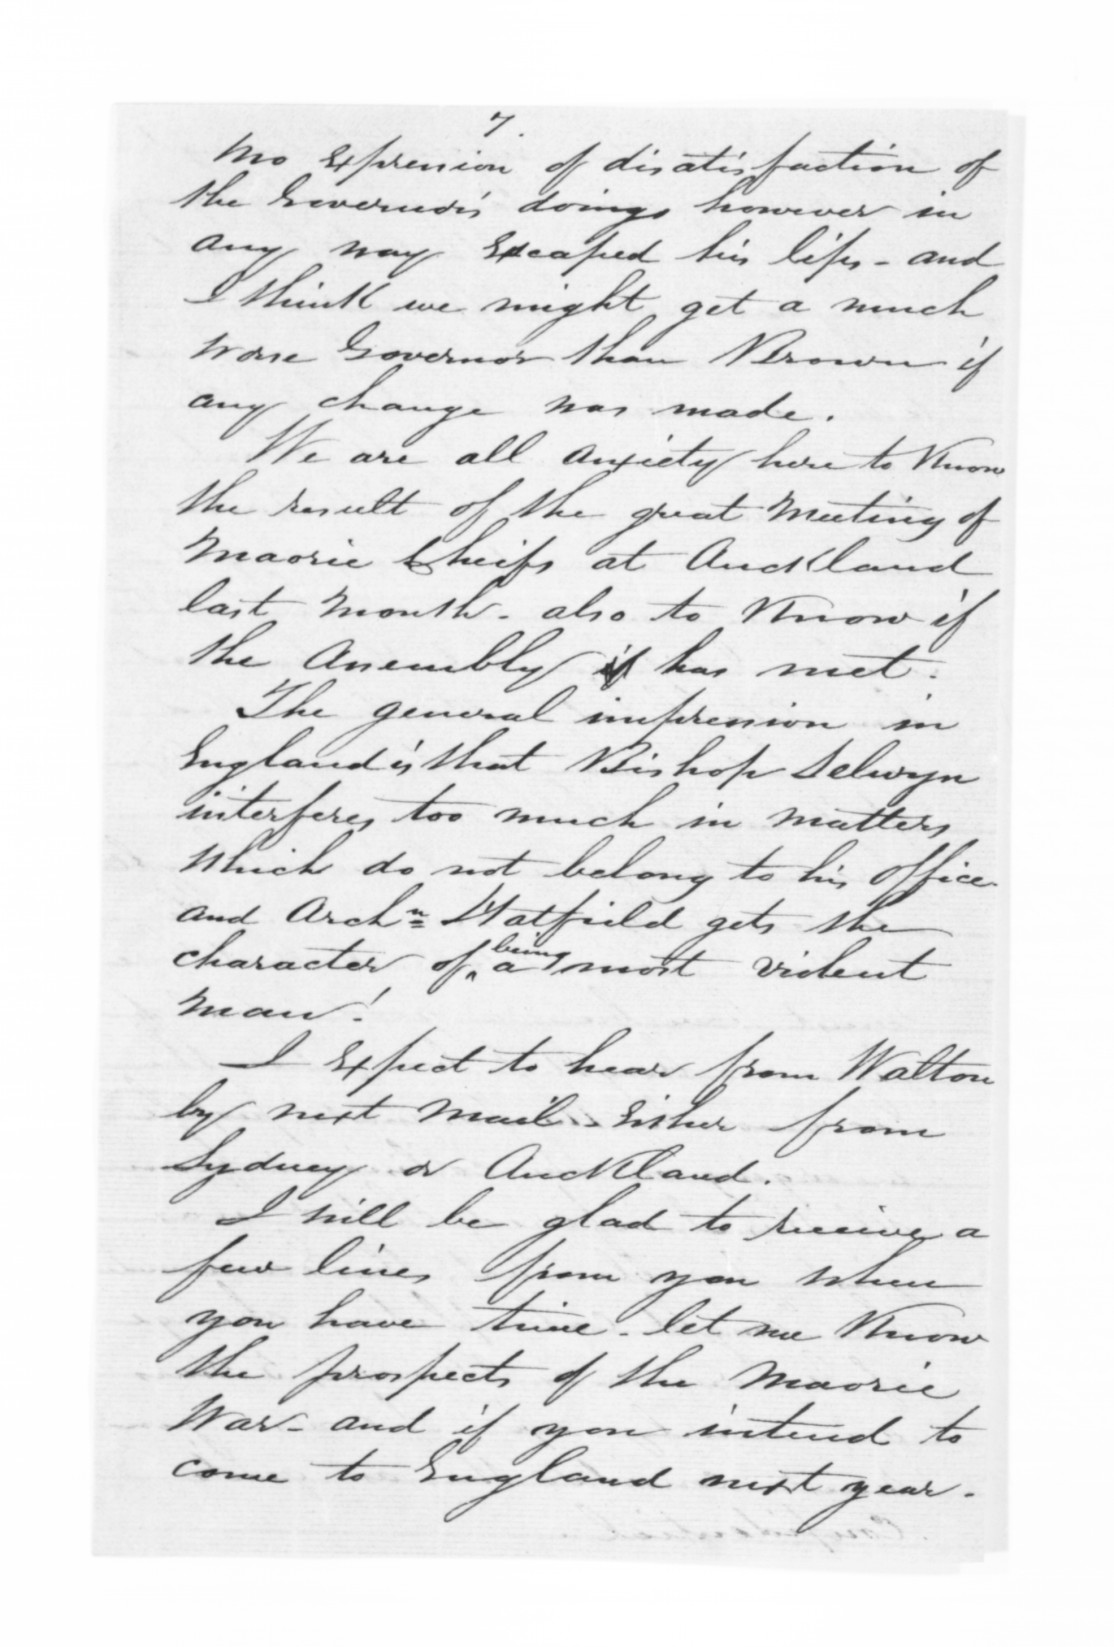 7.
No expression of disatisfaction of
the Governor's doings however in
any way escaped his lips - and
I think we might get a much
worse Governor than Brown if
any change was made.
We are all anxiety here to Know
the result of the great Meeting of
Maorie Cheifs at Auckland
last Month - also to Know if
the Assembly if has met.
The general impression in
England is that Bishop Selwyn
interferes too much in matters
which do not belong to his office
and Archn Hatfield gets the
character of being a most violent
man!
I expect to hear from Walton
by next Mail - Either from
Sydney or Auckland.
I will be glad to receive a
few lines from you when
you have time - let me Know
the prospects of the Maorie
War - and if you intend to
come to England next year.